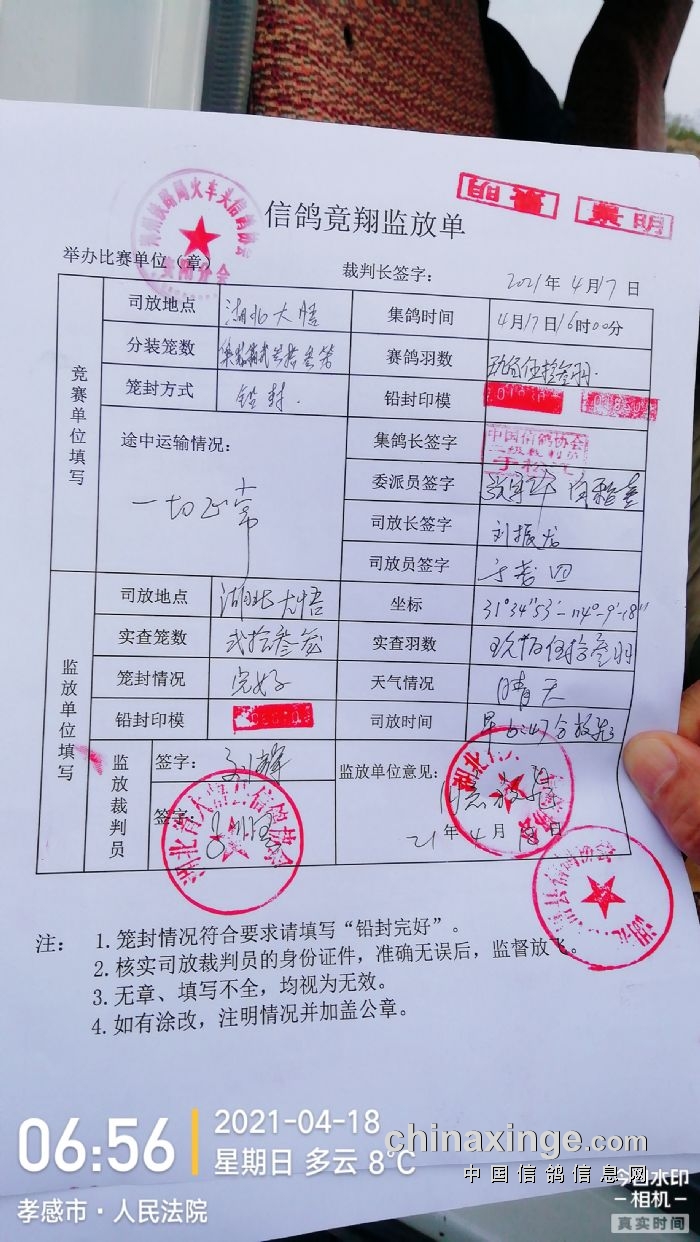 信鸽竞翔监放单
举办比赛单位（章）
裁判长签字：
2021年 4月17日
竞赛单位填写
司放地点 湖北大悟 集鸽时间 4月17日16时00分
分装笼数 赛鸽羽数 玖佰伍拾叁羽
笼封方式 铅封 铅封印模
途中运输情况： 一切正常
集鸽长签字 中国信鸽协会
委派员签字
司放长签字 刘振龙
司放员签字
监放单位填写
司放地点 湖北大悟 坐标 31°34″53′-114°-9′-18″
实查笼数 贰拾叁笼 实查羽数 玖佰伍拾叁羽
笼封情况 完好 天气情况 晴天
铅封印模 司放时间 早6:47分放飞
监放裁判员
签字：
签字：
监放单位意见：
21年4月18日
注： 1.笼封情况符合要求请填写“铅封完好”。
2.核实司放裁判员的身份证件，准确无误后，监督放飞。
3.无章、填写不全，均视为无效。
4.如有涂改，注明情况并加盖公章。
06:56
2021-04-18
星期日 多云 8℃
孝感市·人民法院
chinaxinge.com
中国信鸽信息网
今日水印
-相机-
真实时间